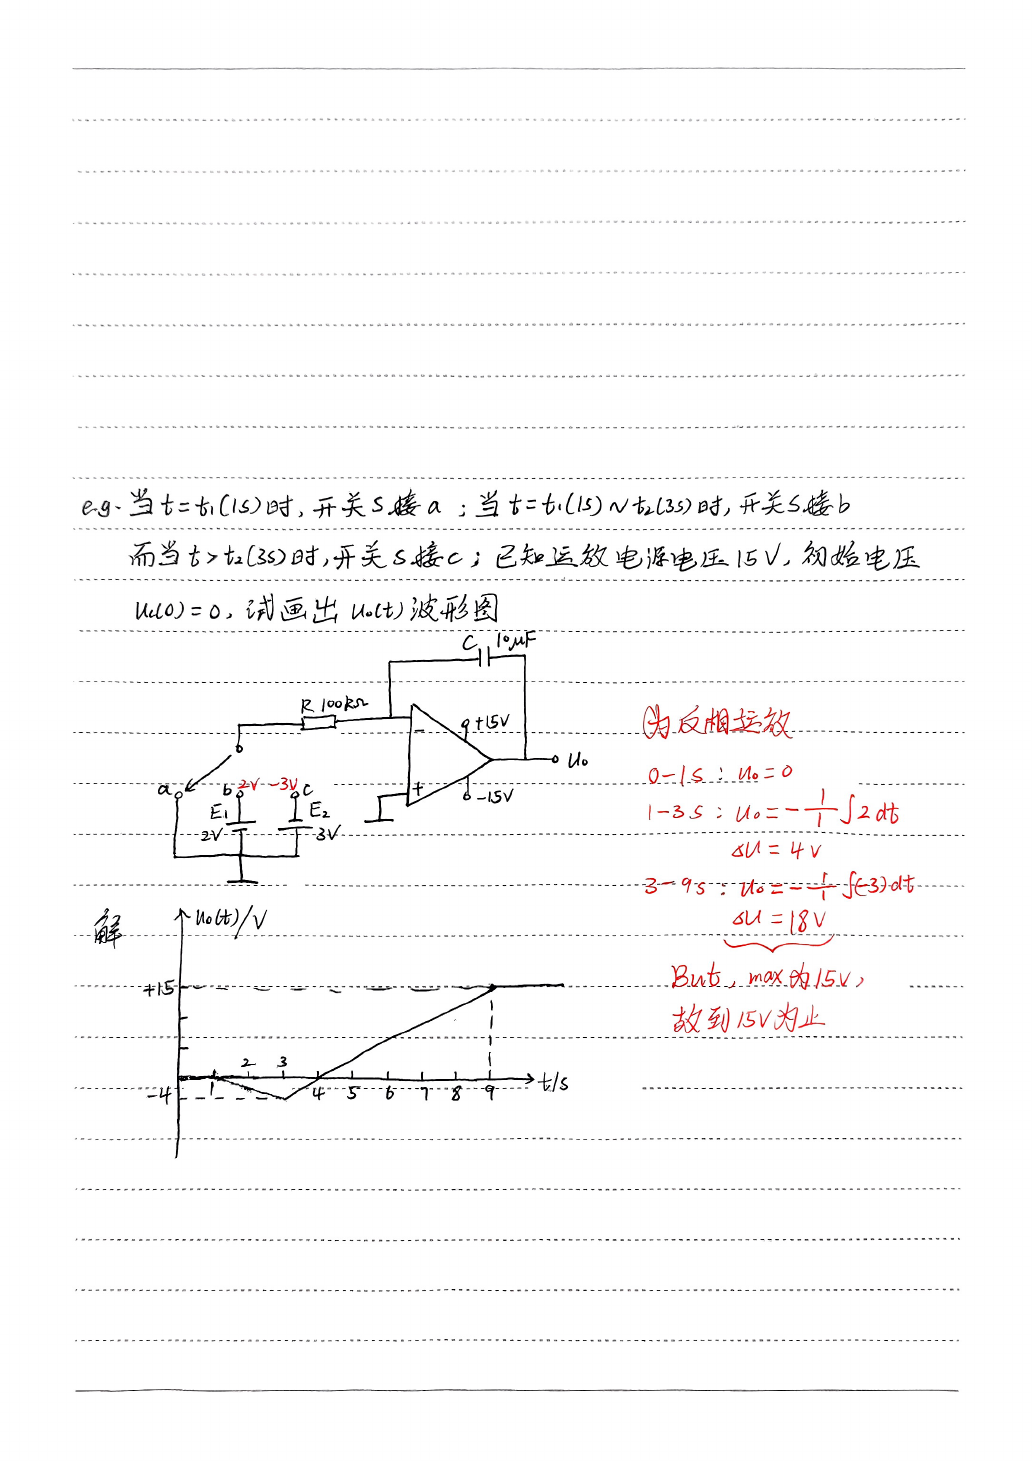 e.g. 当t=t₁(1s)时，开关S接a；当t=t₁(1s)~t₂(3s)时，开关S接b
而当t>t₂(3s)时，开关S接c；已知运放电源电压15V，初始电压
Uc(0)=0，试画出 u₀(t)波形图
C 10μF
R 100kΩ
+15V
-
u₀
+
-15V
a b 2V -3V c
E₁ E₂
2V 3V
为反相运放
0-1s：u₀=0
1-3s：u₀=-1/1∫2dt
ΔU=4V
3-9s：u₀=-1/1∫(-3)dt
ΔU=18V
But，max为15V，
故到15V为止
解
u₀(t)/V
+15
2 3
-4
1 4 5 6 7 8 9
t/s